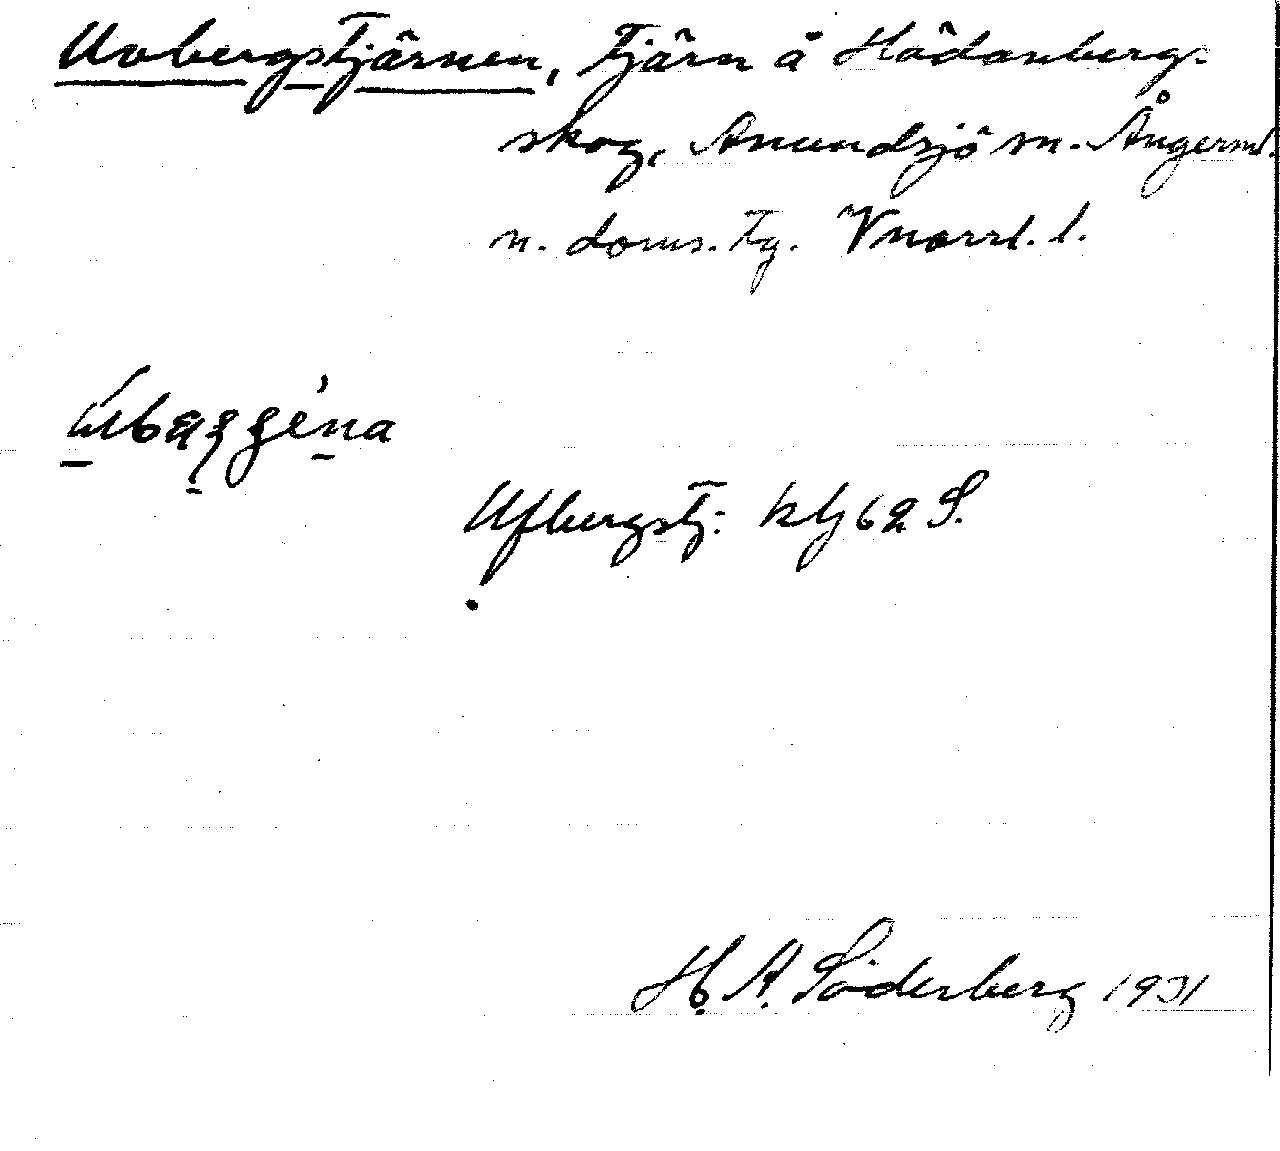 Uvbergstjärnen, Tjärn å Hädanberg-
skog, Anundsjö sn. Ångerml.
n. doms. Tg. Vnorrl. l.
Ufbergstj: klj 62 S.
H. A. Söderberg 1931